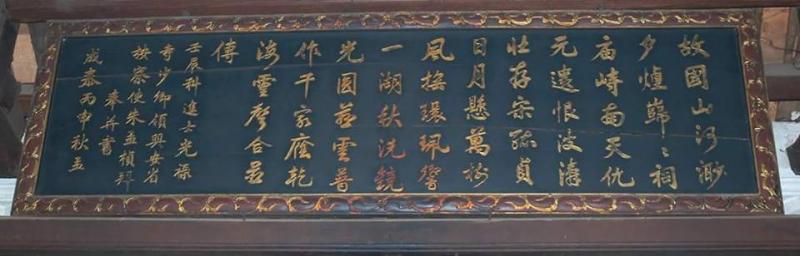 故國山河渺
夕煙巋〻祠
廟峙南天仇
元遺恨波濤
壯存宋孤貞
日月懸萬樹
風搖環珮響
一湖秋洗鏡
光圓慈雲普
作千家蔭乾
海靈聲合並
傳
壬辰科進士光祿
寺少卿領興安省
按察使朱孟楨拜
奉并書
成泰丙申秋孟